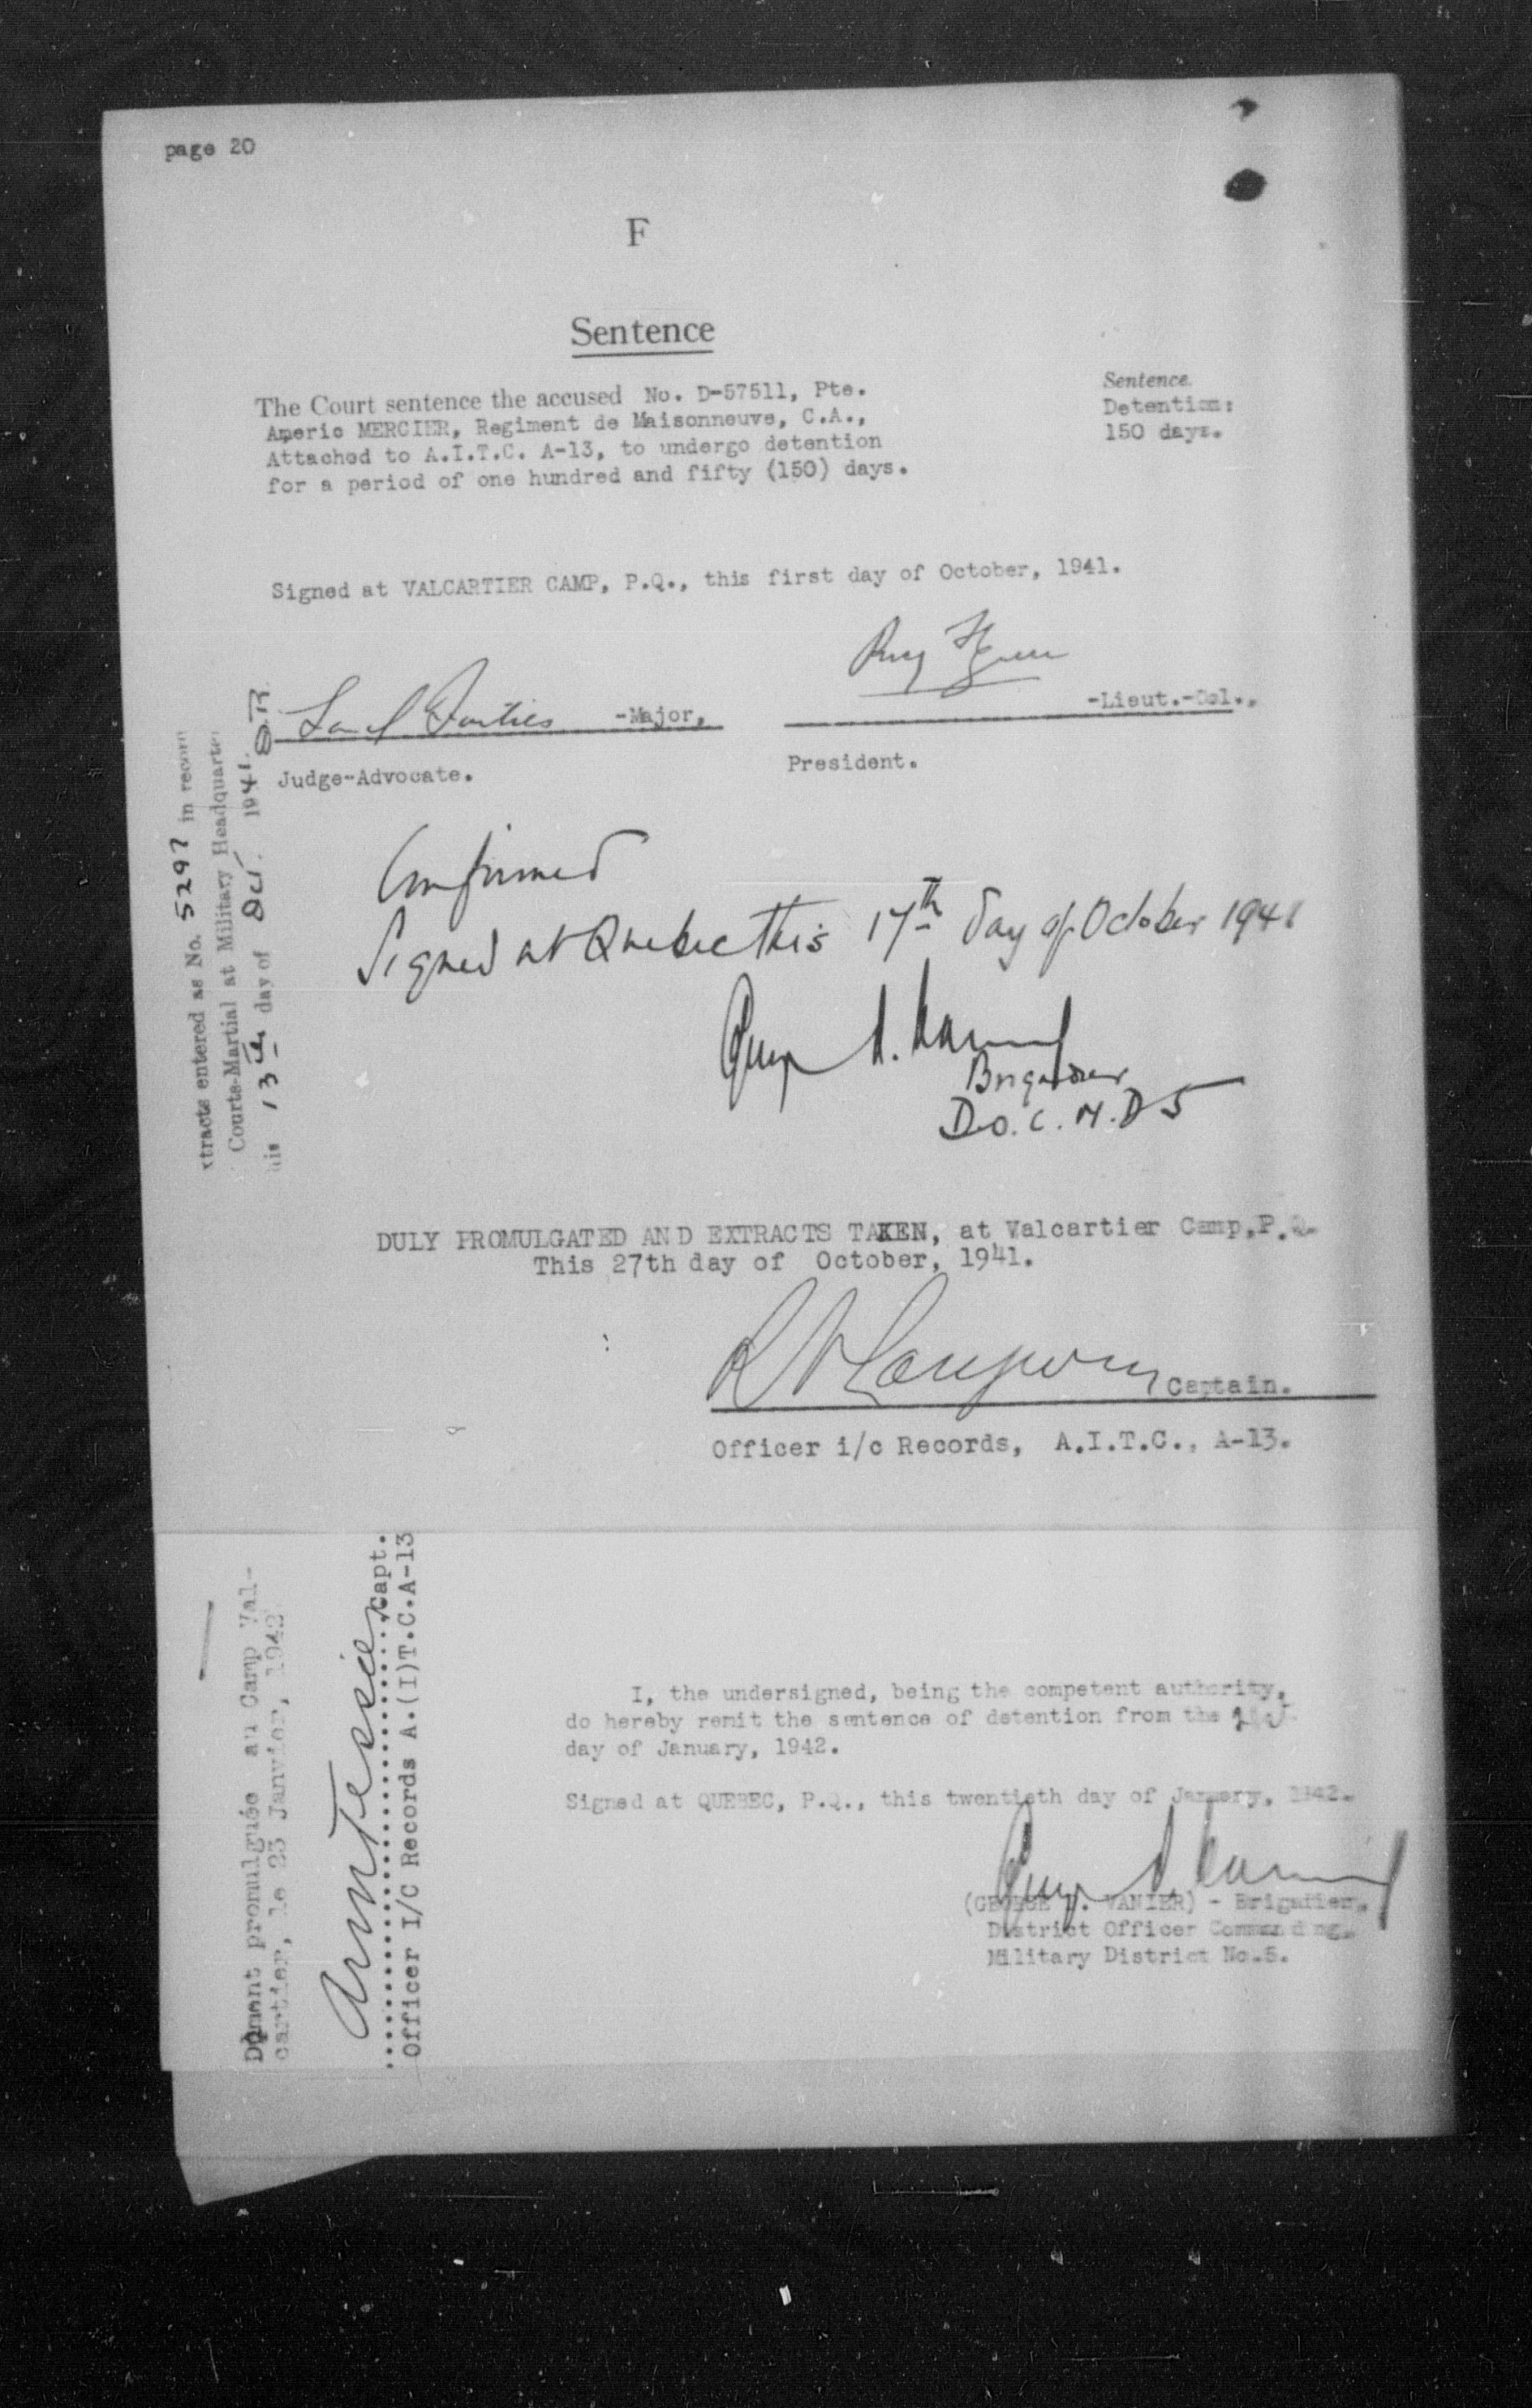 page 20
F
Sentence
The Court sentence the accused No. D-57511, Pte.
Americ MERCIER, Regiment de Maisonneuve, C.A.,
Attached to A.I.T.C. A-13, to undergo detention
for a period of one hundred and fifty (150) days.
Sentence.
Detention:
150 days.
Signed at VALCARTIER CAMP, P.Q., this first day of October, 1941.
-Major,
Judge-Advocate.
-Lieut.-Col.,
President.
xtracts entered as No. 5297 in recor
Courts-Martial at Military Headquarte
his 13th day of Oct. 1941.
Confirmed
Signed at Quebec this 17th day of October 1941
Brigadier
D.O.C. M.D 5
DULY PROMULGATED AND EXTRACTS TAKEN, at Valcartier Camp,P.Q.
This 27th day of October, 1941.
Captain.
Officer i/c Records, A.I.T.C., A-13.
Dûment promulguée au Camp Val-
cartier, le 23 Janvier, 1942
Capt.
Officer I/C Records A.(I)T.C.A-13
I, the undersigned, being the competent authority,
do hereby remit the sentence of detention from the
day of January, 1942.
Signed at QUEBEC, P.Q., this twentieth day of January, 1942.
(GEORGE P. VANIER) - Brigadier,
District Officer Commanding,
Military District No.5.